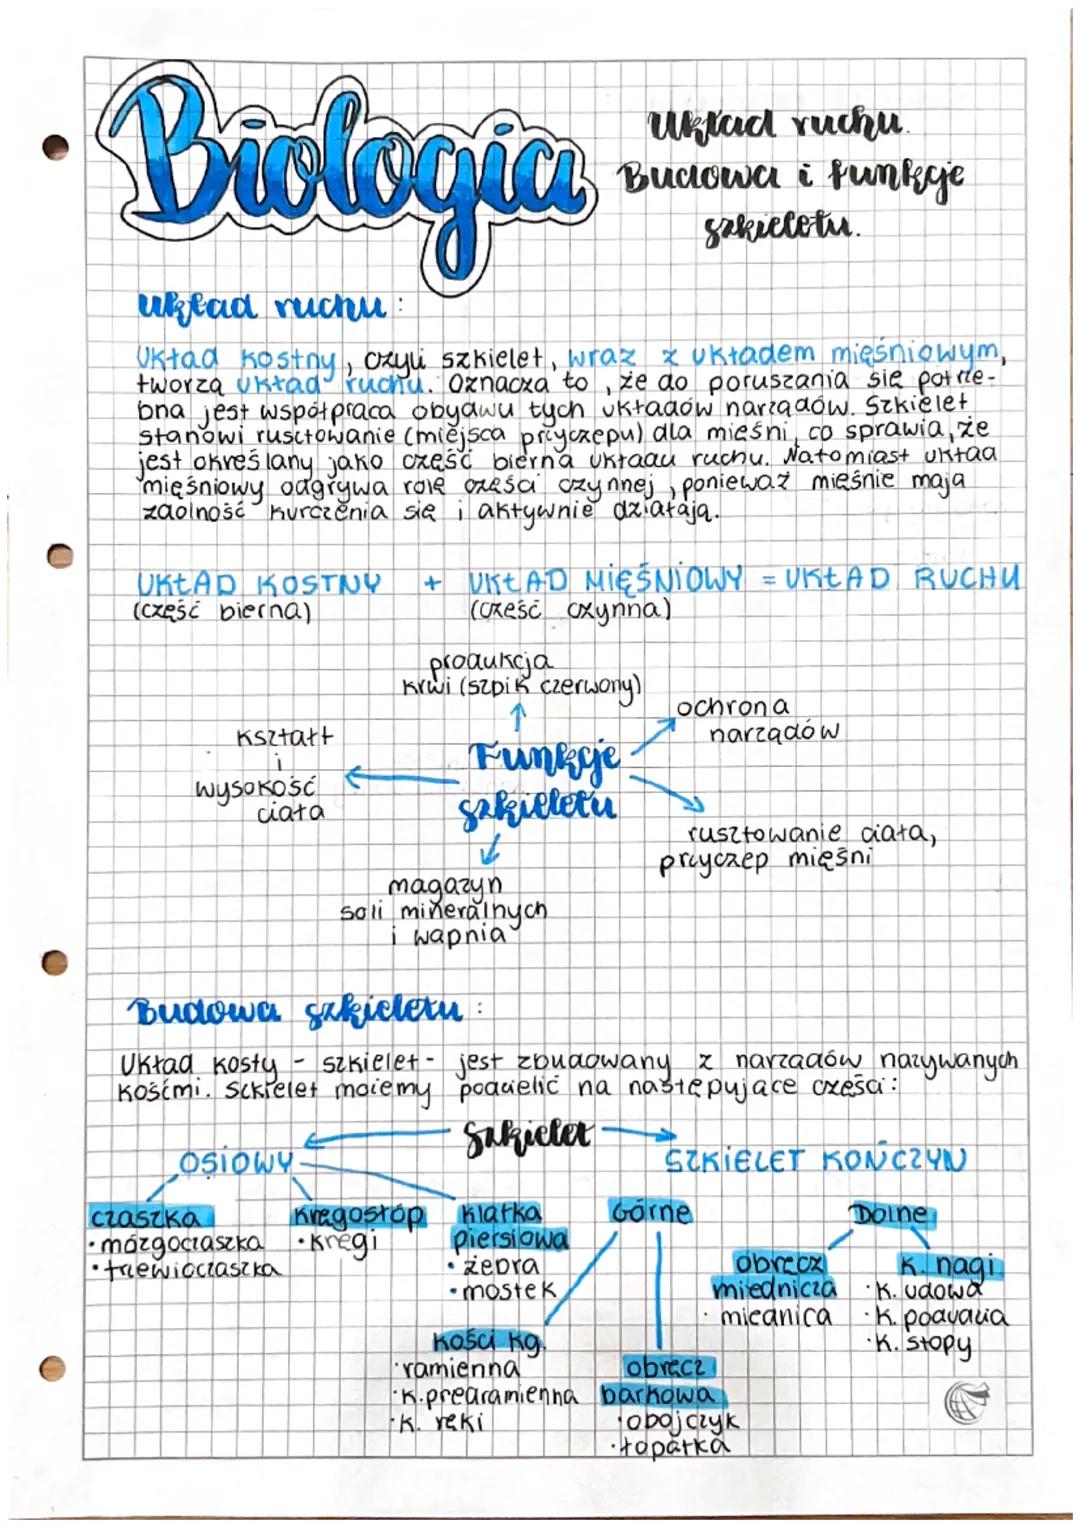 Biologia
Układ ruchu.
Budowa i funkcje
szkieletu.
układ ruchu:
Układ kostny, czyli szkielet, wraz z układem mięśniowym,
tworzą układ ruchu. Oznacza to, że do poruszania się potrze-
bna jest współpraca obydwu tych układów narządów. Szkielet
stanowi rusztowanie (miejsca przyczepu) dla mięśni, co sprawia, że
jest określany jako część bierna układu ruchu. Natomiast układ
mięśniowy odgrywa rolę części czynnej, ponieważ mięśnie mają
zdolność kurczenia się i aktywnie działają.
UKŁAD KOSTNY + UKŁAD MIĘŚNIOWY = UKŁAD RUCHU
(część bierna) (część czynna)
produkcja
krwi (szpik czerwony)
ochrona
narządów
kształt
i
wysokość
ciała
Funkcje
szkieletu
rusztowanie ciała,
przyczep mięśni
magazyn
soli mineralnych
i wapnia
Budowa szkieletu:
Układ kosty - szkielet - jest zbudowany z narządów nazywanych
kośćmi. Szkielet możemy podzielić na następujące części:
Szkielet
OSIOWY
SZKIELET KOŃCZYN
czaszka
• mózgoczaszka
• trzewioczaszka
Kręgosłup
• kręgi
klatka
piersiowa
• żebra
• mostek
Górne
Dolne
obręcz
miednicza
· miednica
k. nagi
·k. udowa
·k. podudzia
·k. stopy
kości kg.
·ramienna
·k. predramienna
·k. ręki
obręcz
barkowa
·obojczyk
·łopatka